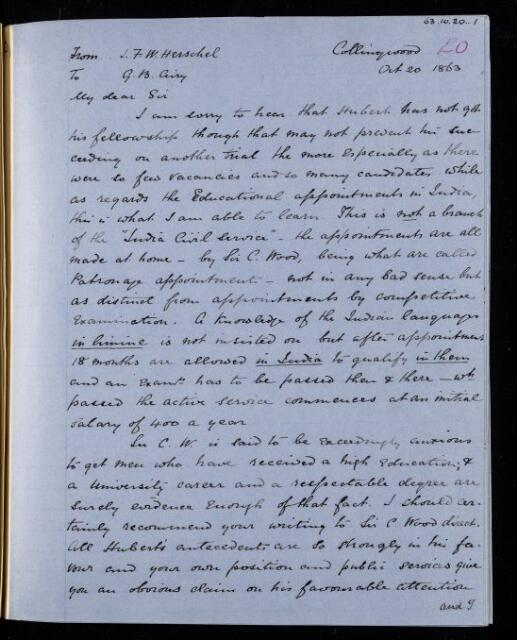 63.10.20.1
From J. F. W. Herschel Collingwood LO
To G. B. Airy Oct 20 1863
My dear Sir
I am sorry to hear that Hubert has not got
his fellowship though that may not prevent his suc-
ceeding on another trial the more Especially as there
were so few vacancies and so many candidates while
as regards the Educational appointments in India,
this is what I am able to learn. This is not a branch
of the "India Civil Service" - the appointments are all
made at home - by Sir C. Wood, being what are called
Patronage appointments - not in any bad sense but
as distinct from appointments by competitive
Examination. A knowledge of the Indian languages
in limine is not insisted on but after appointment
18 months are allowed in India to qualify in them
and an Exam.n has to be passed then & there - wh
passed the active service commences at an initial
salary of 400 a year
Sir C. W is said to be Exceedingly anxious
to get men who have received a high Education, &
a University career and a respectable degree are
surely evidence Enough of that fact. I should cer-
tainly recommend your writing to Sir C Wood direct.
All Hubert's antecedents are so strongly in his fa-
vour and your own position and public services give
you an obvious claim on his favourable attention
and I